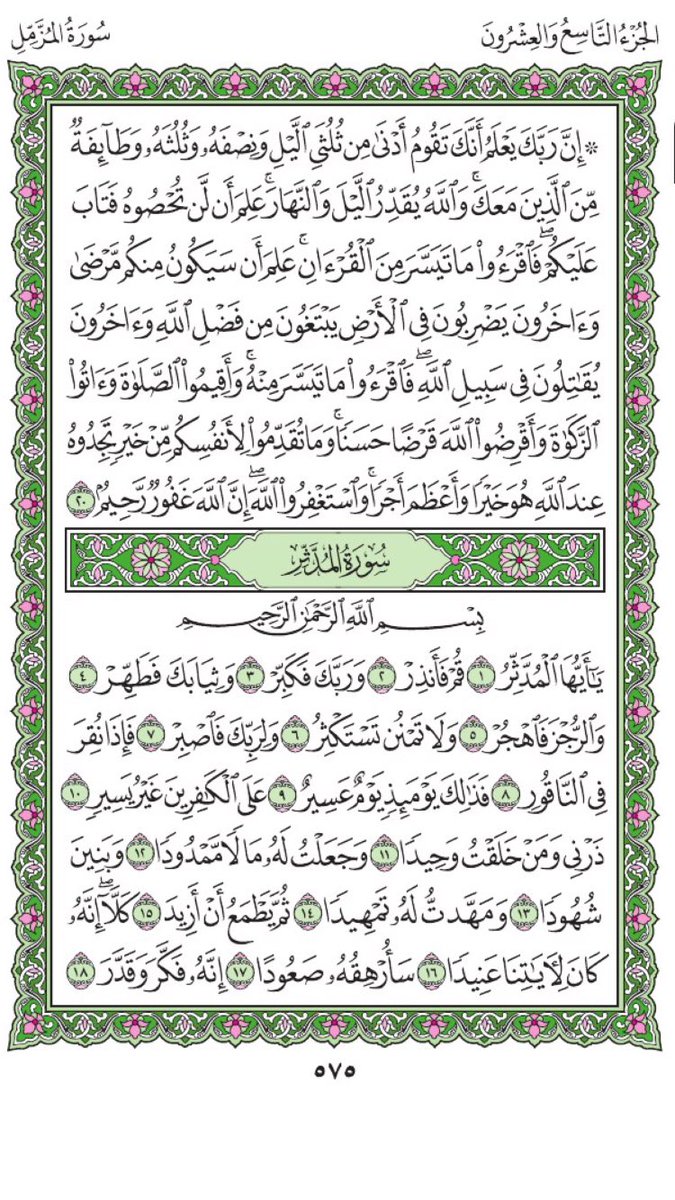 الجُزْءُ التَّاسِعُ وَالعِشْرُونَ
سُورَةُ المُزَّمِّلِ
۞ إِنَّ رَبَّكَ يَعْلَمُ أَنَّكَ تَقُومُ أَدْنَىٰ مِن ثُلُثَيِ ٱلَّيْلِ وَنِصْفَهُۥ وَثُلُثَهُۥ وَطَآئِفَةٌ
مِّنَ ٱلَّذِينَ مَعَكَۚ وَٱللَّهُ يُقَدِّرُ ٱلَّيْلَ وَٱلنَّهَارَۚ عَلِمَ أَن لَّن تُحْصُوهُ فَتَابَ
عَلَيْكُمْۖ فَٱقْرَءُوا۟ مَا تَيَسَّرَ مِنَ ٱلْقُرْءَانِۚ عَلِمَ أَن سَيَكُونُ مِنكُم مَّرْضَىٰ
وَءَاخَرُونَ يَضْرِبُونَ فِى ٱلْأَرْضِ يَبْتَغُونَ مِن فَضْلِ ٱللَّهِ وَءَاخَرُونَ
يُقَٰتِلُونَ فِى سَبِيلِ ٱللَّهِۖ فَٱقْرَءُوا۟ مَا تَيَسَّرَ مِنْهُۚ وَأَقِيمُوا۟ ٱلصَّلَوٰةَ وَءَاتُوا۟
ٱلزَّكَوٰةَ وَأَقْرِضُوا۟ ٱللَّهَ قَرْضًا حَسَنًاۚ وَمَا تُقَدِّمُوا۟ لِأَنفُسِكُم مِّنْ خَيْرٍ تَجِدُوهُ
عِندَ ٱللَّهِ هُوَ خَيْرًا وَأَعْظَمَ أَجْرًاۚ وَٱسْتَغْفِرُوا۟ ٱللَّهَۖ إِنَّ ٱللَّهَ غَفُورٌ رَّحِيمٌۢ ٢٠
سُورَةُ المُدَّثِّرِ
بِسْمِ ٱللَّهِ ٱلرَّحْمَٰنِ ٱلرَّحِيمِ
يَٰٓأَيُّهَا ٱلْمُدَّثِّرُ ١ قُمْ فَأَنذِرْ ٢ وَرَبَّكَ فَكَبِّرْ ٣ وَثِيَابَكَ فَطَهِّرْ ٤
وَٱلرُّجْزَ فَٱهْجُرْ ٥ وَلَا تَمْنُن تَسْتَكْثِرُ ٦ وَلِرَبِّكَ فَٱصْبِرْ ٧ فَإِذَا نُقِرَ
فِى ٱلنَّاقُورِ ٨ فَذَٰلِكَ يَوْمَئِذٍ يَوْمٌ عَسِيرٌ ٩ عَلَى ٱلْكَٰفِرِينَ غَيْرُ يَسِيرٍ ١٠
ذَرْنِى وَمَنْ خَلَقْتُ وَحِيدًا ١١ وَجَعَلْتُ لَهُۥ مَالًا مَّمْدُودًا ١٢ وَبَنِينَ
شُهُودًا ١٣ وَمَهَّدتُّ لَهُۥ تَمْهِيدًا ١٤ ثُمَّ يَطْمَعُ أَنْ أَزِيدَ ١٥ كَلَّآۖ إِنَّهُۥ
كَانَ لِـَٔايَٰتِنَا عَنِيدًا ١٦ سَأُرْهِقُهُۥ صَعُودًا ١٧ إِنَّهُۥ فَكَّرَ وَقَدَّرَ ١٨
٥٧٥